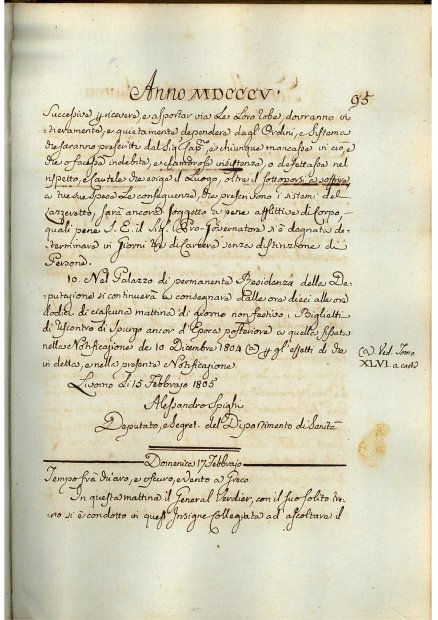 Anno MDCCCV.
95
Successiva p ricevere, e asportar via Le Loro robe, dovranno in-
tieramente, e quietamente dependere dagl'Ordini, e Sistema
che saranno prescritti dal Sig. Cap.no, e chiunque mancasse in ciò, e
che o facesse indebita, e clamorosa insistenza, o difettasse nel
rispetto, e Cautele che esige il Luogo, oltre il sottoporsi a soffrire
a tue sue spese Le Conseguenze, che prescrivono i sistemi del
Lazzeretto, sarà ancora soggetto a pene afflittive di Corpo,
quali pene S. E. il Sig. Pro-Governatore si è degnata de-
terminare in Giorni tre di Carcere senza distinzione di
Persone.
10. Nel Palazzo di permanente Residenza della De-
putazione si continuerà a consegnare dalle ore dieci alle ore
dodici di ciascuna mattina di giorno non festivo i Biglietti
di riscontro di Spurgo ancor d'Epoca posteriore a quella fissata
nella Notificazione de 10 Dicembre 1804 (a) p gl'effetti di che
in detta, e nella presente Notificazione.
(a) Ved. Tomo
XLVI. a cart.
Livorno Li 15 Febbrajo 1805
Alessandro Spighi
Deputato, e Segret. del Dipartimento di Sanità
Domenica 17 Febbrajo
Tempo frà chiaro, e oscuro, e vento a Greco.
In questa mattina il General Verdier, con il suo solito tre-
no si è condotto in quest'Insigne Collegiata ad'ascoltare il